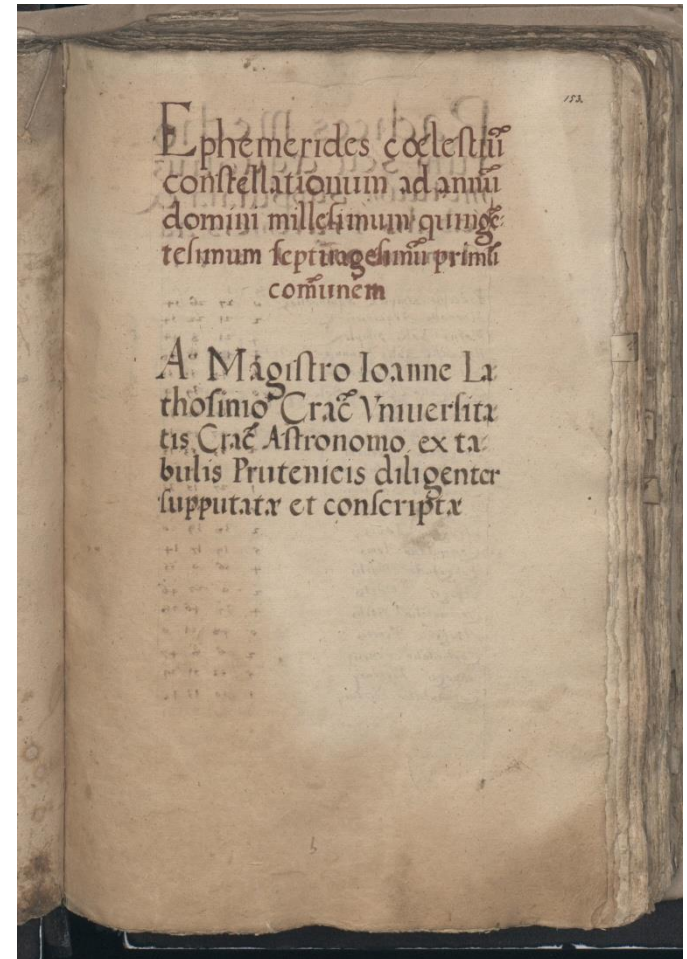 153.
Ephemerides cœlestiū
constellationum ad annū
domini millesimum quingē
tesimum septuagesimū primū
com̄unem
A Magistro Ioanne La
thosinio Crac̄ Vniuersita
tis Crac̄ Astronomo ex ta
bulis Prutenicis diligenter
supputatæ et conscriptæ